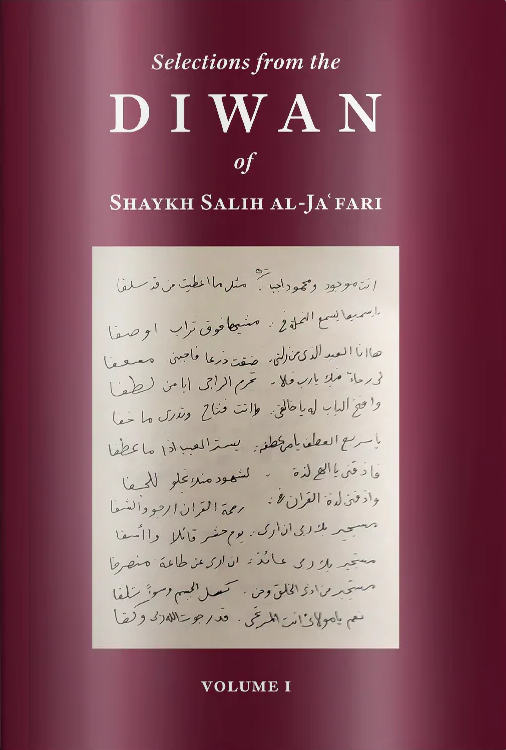 Selections from the
DIWAN
of
SHAYKH SALIH AL-JAʿFARI
انت موجود ومحمود اجبا مثل ما اعطيت من قد سلفا
يا سميعا يسمع النملة في مشيها فوق تراب او صفا
ها انا العبد الذي من زلتي ضقت ذرعا فاجبني مسعفا
لى رجاء فيك يارب فلا تحرم الراجى ايا من لطفا
وافتح الباب له يا خالقي وانت فتاح وتدرى ما خفا
يا سريع العطف يا من عطفه يستر العيب اذا ما عطفا
فاذقنى يا الهى لذة لشهود منك تجلو للخفا
واذقنى لذة القران فى رحمة القران ارجو والشفا
مستجير بك ربى ان ارى يوم حشر قائلا وا أسفا
مستجير بك ربى عائذ ان ارى عن طاعة منصرفا
مستجير من اذى الخلق ومن كسل الجسم وسوء
نعم يا مولاى انت المرتجى قد رجوت الله ربى وكفا
VOLUME I